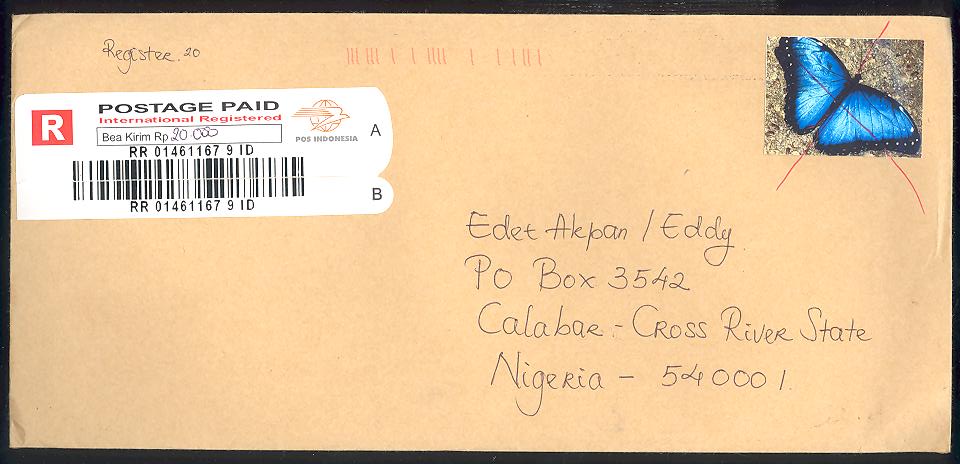 Register. 20
R
POSTAGE PAID
International Registered
Bea Kirim Rp 20 000
POS INDONESIA
A
RR 01461167 9 ID
B
RR 01461167 9 ID
Edet Akpan / Eddy
PO Box 3542
Calabar - Cross River State
Nigeria - 540001.